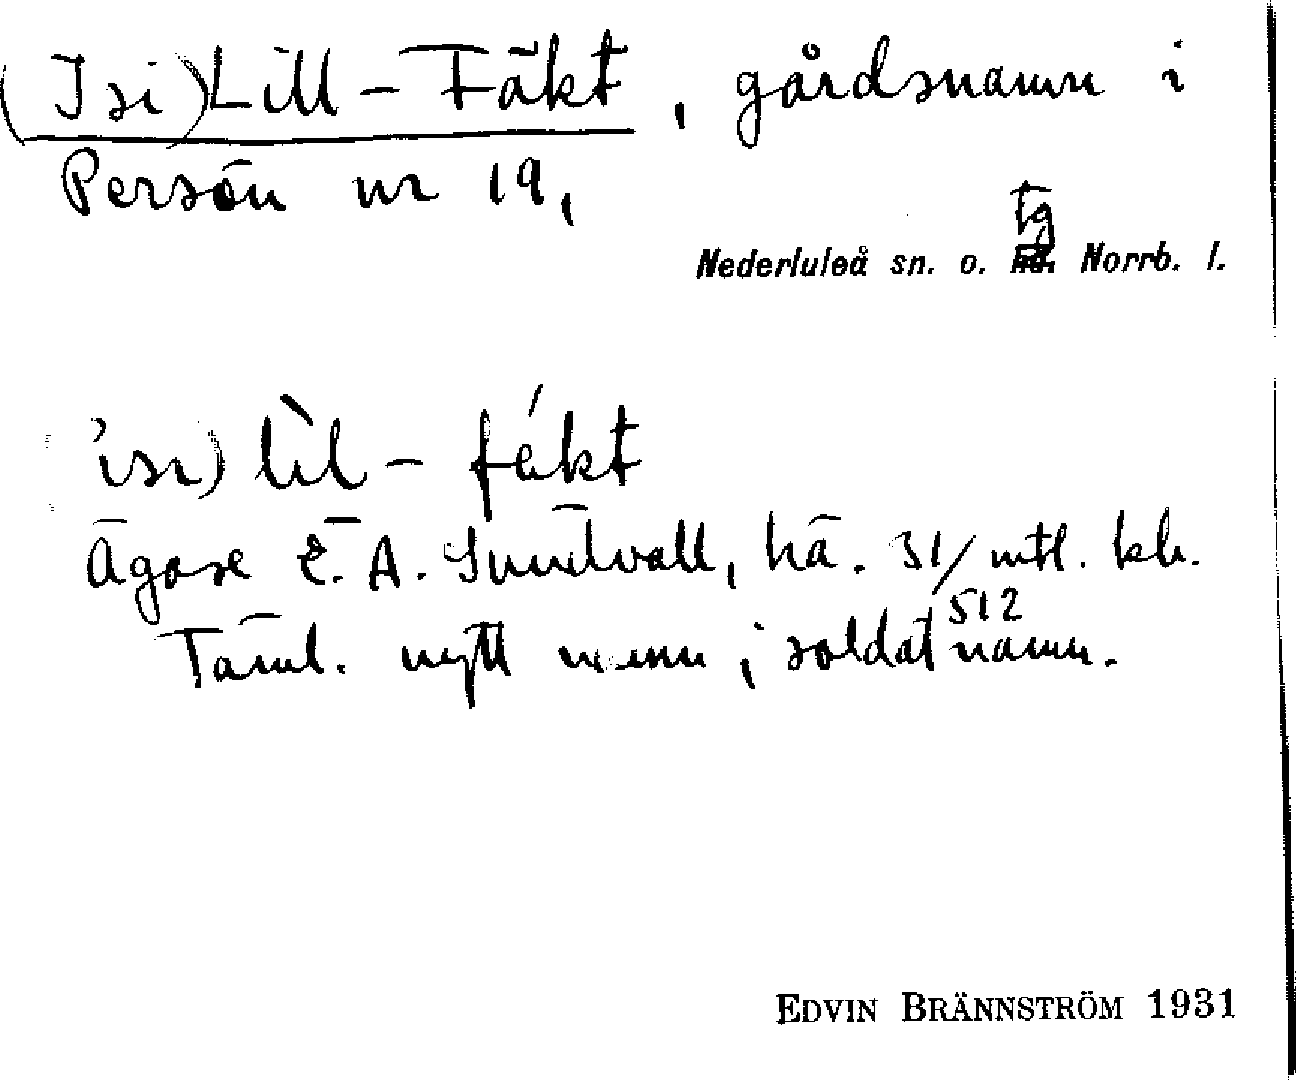 (Isi) Lill-Fäkt, gårdsnamn i
Persön nr 19,
Nederluleå sn. o. tg Norrb. l.
isi) lìl-fékt
Ägare E. A. Sundvall, hä. 31/512 mtl. kr.
Täml. nytt namn; soldatnamn.
EDVIN BRÄNNSTRÖM 1931